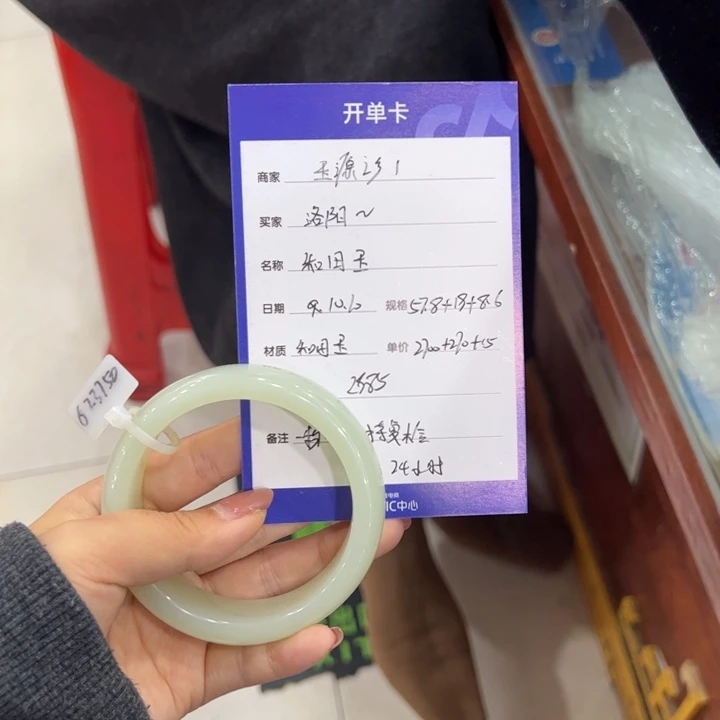 开单卡
商家 玉源珍1
买家 洛阳~
名称 和田玉
日期 9.10.6 规格 57.8+13+8.6
材质 和田玉 单价 2300+270+15
2585
备注 择复检
24小时
IC中心
623750